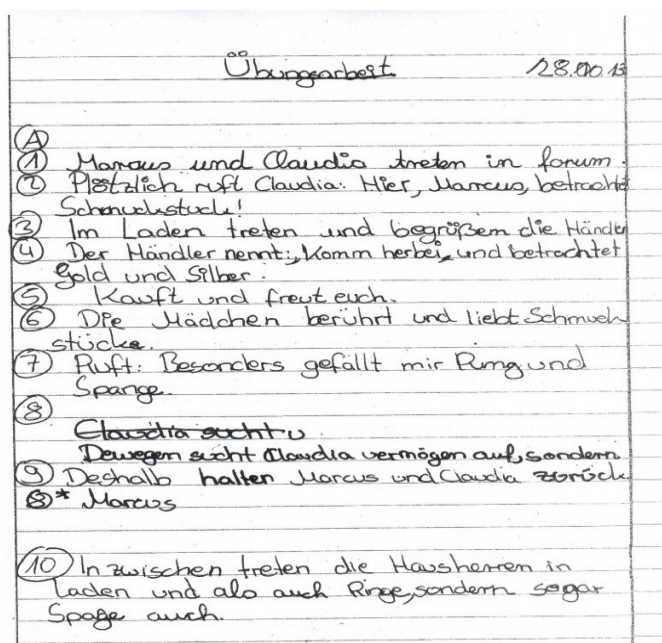 Übungsarbeit 28.10.13
A
1 Marcus und Claudia treten in forum.
2 Plötzlich ruft Claudia: Hier, Marcus, betrachtet
Schmuckstuck!
3 Im Laden treten und begrüßem die Händler
4 Der Händler nennt: „Komm herbei, und betrachtet
Gold und Silber.
5 Kauft und freut euch.
6 Die Mädchen berührt und liebt Schmuck
stücke.
7 Ruft: Besonders gefällt mir Ring und
Spange.
8
Claudia sucht u
Dewegen sucht Claudia vermögen auf, sondern
9 Deshalb halten Marcus und Claudia zurück
8* Marcus
10 In zwischen treten die Hausherren in
Laden und alo auch Ringe, sondern sogar
Spage auch.